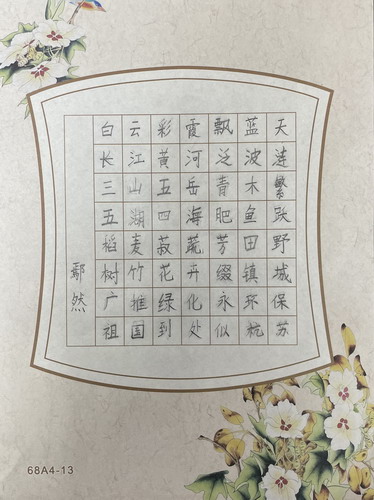 白云彩霞飘蓝天
长江黄河泛波涟
三山五岳青木繁
五湖四海肥鱼跃
稻麦菽蔬芳田野
树竹花卉缀镇城
广推绿化永环保
祖国到处似杭苏
鄢然
68A4-13